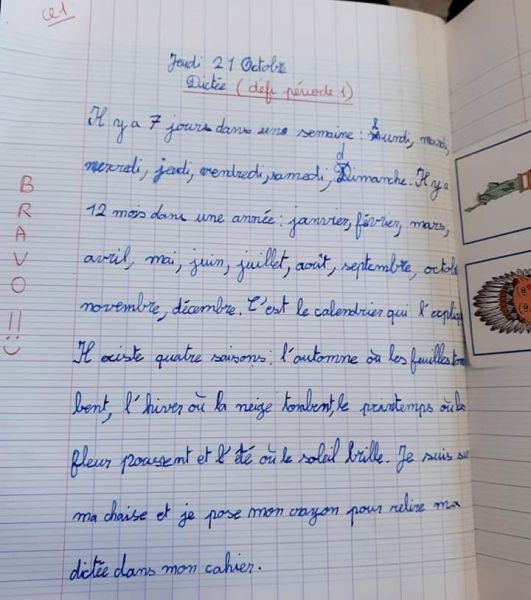 CE1
Jeudi 21 Octobre
Dictée (défi période 1)
Il y a 7 jours dans une semaine : lundi, mardi,
mercredi, jeudi, vendredi, samedi, dimanche. Il y a
12 mois dans une année : janvier, février, mars,
avril, mai, juin, juillet, août, septembre, octob
novembre, décembre. C'est le calendrier qui l'expliq
Il existe quatre saisons : l'automne où les feuilles tom
bent, l'hiver où la neige tombent, le printemps où les
fleur poussent et l'été où le soleil brille. Je suis su
ma chaise et je pose mon crayon pour relire ma
dictée dans mon cahier.
BRAVO !!